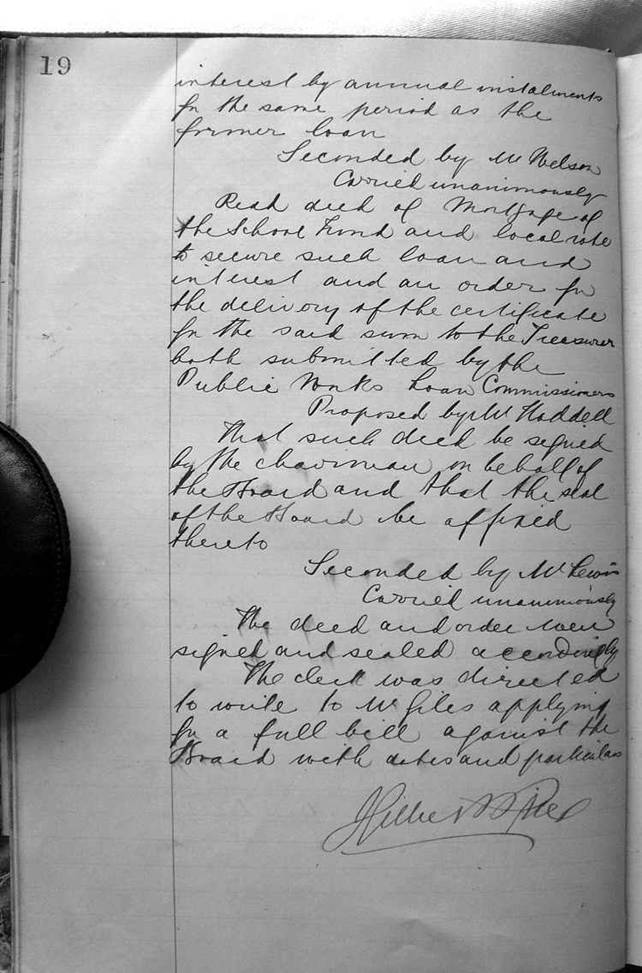 19
interest by annual instalments
for the same period as the
former loan
Seconded by Mr Nelson
Carried unanimously
Read deed of Mortgage of
the School Fund and local rate
to secure such loan and
interest and an order for
the delivery of the certificate
for the said sum to the Treasurer
both submitted by the
Public Works Loan Commissioners
Proposed by Mr Haddell
That such deed be signed
by the chairman on behalf of
the Board and that the seal
of the Board be affixed
thereto
Seconded by Mr Lewis
Carried unanimously
The deed and order were
signed and sealed accordingly
The clerk was directed
to write to Mr Giles applying
for a full bill against the
Board with dates and particulars